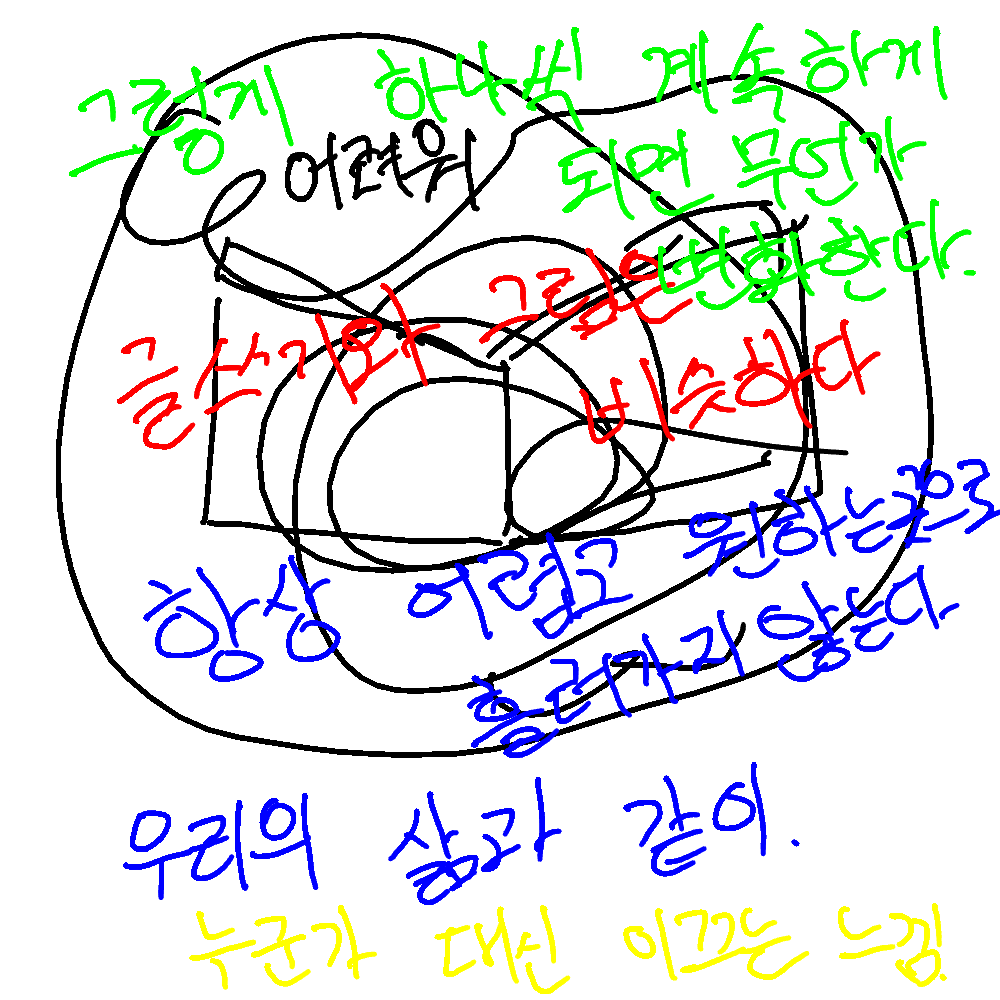 그렇게 하나씩 계속하게
되면 무언가
변화한다.
어려워
글쓰기와 그림은
비슷하다
항상 어렵고 원하는곳으로
흘러가지 않는다
우리의 삶과 같이.
누군가 대신 이끄는 느낌.